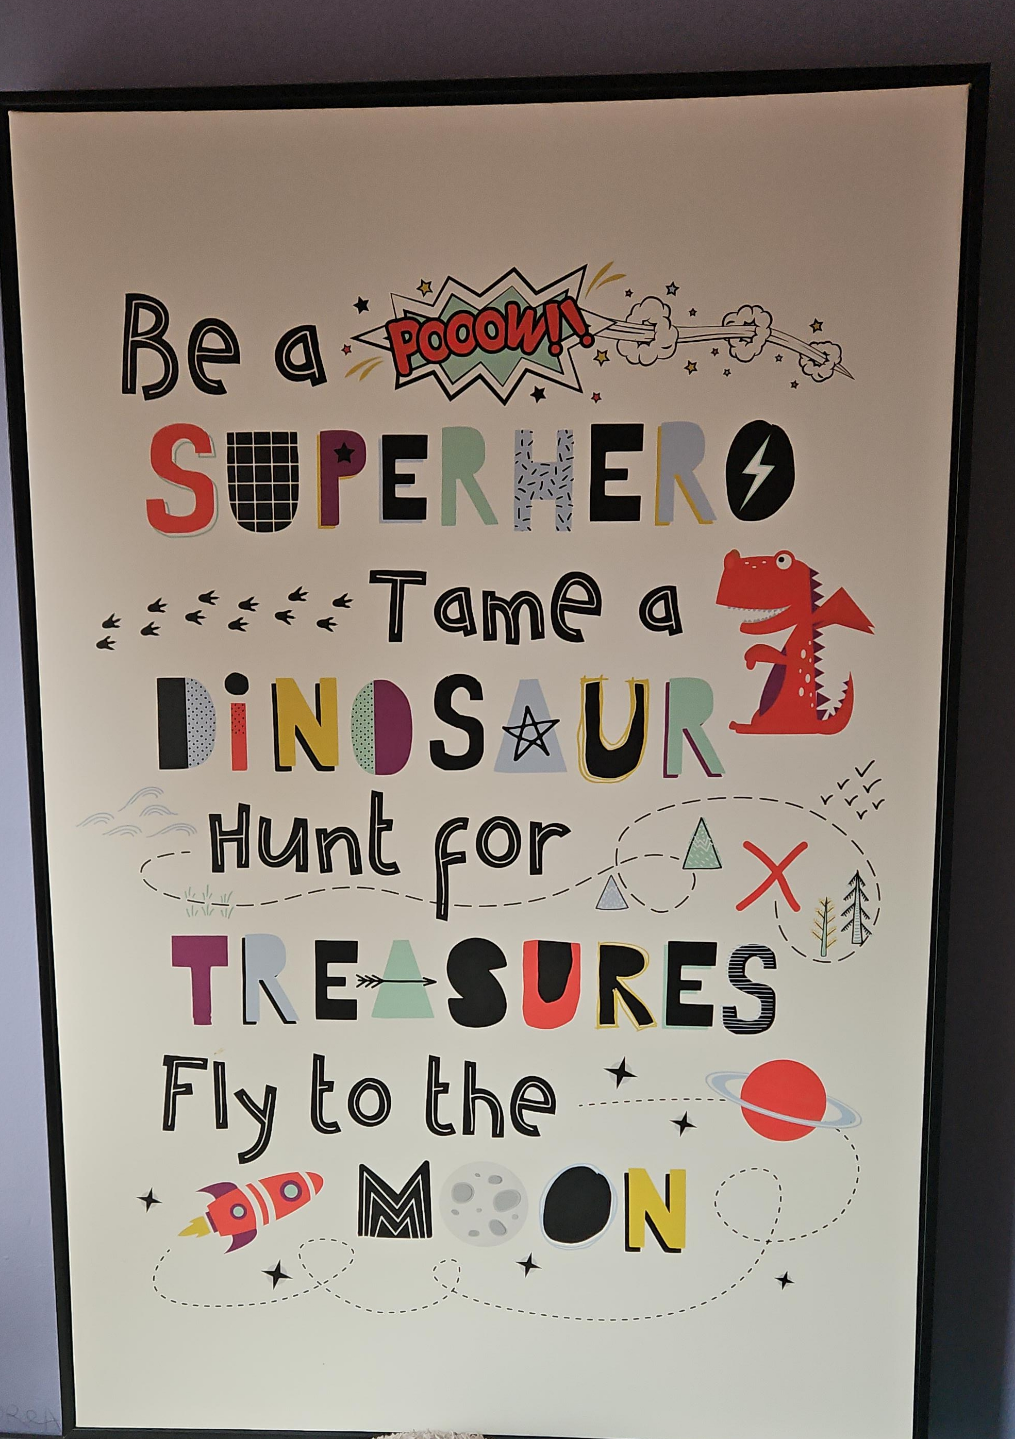 Be a POOOW!!
SUPERHERO
Tame a
DiNOSAUR
Hunt for
TREASURES
Fly to the
MOON